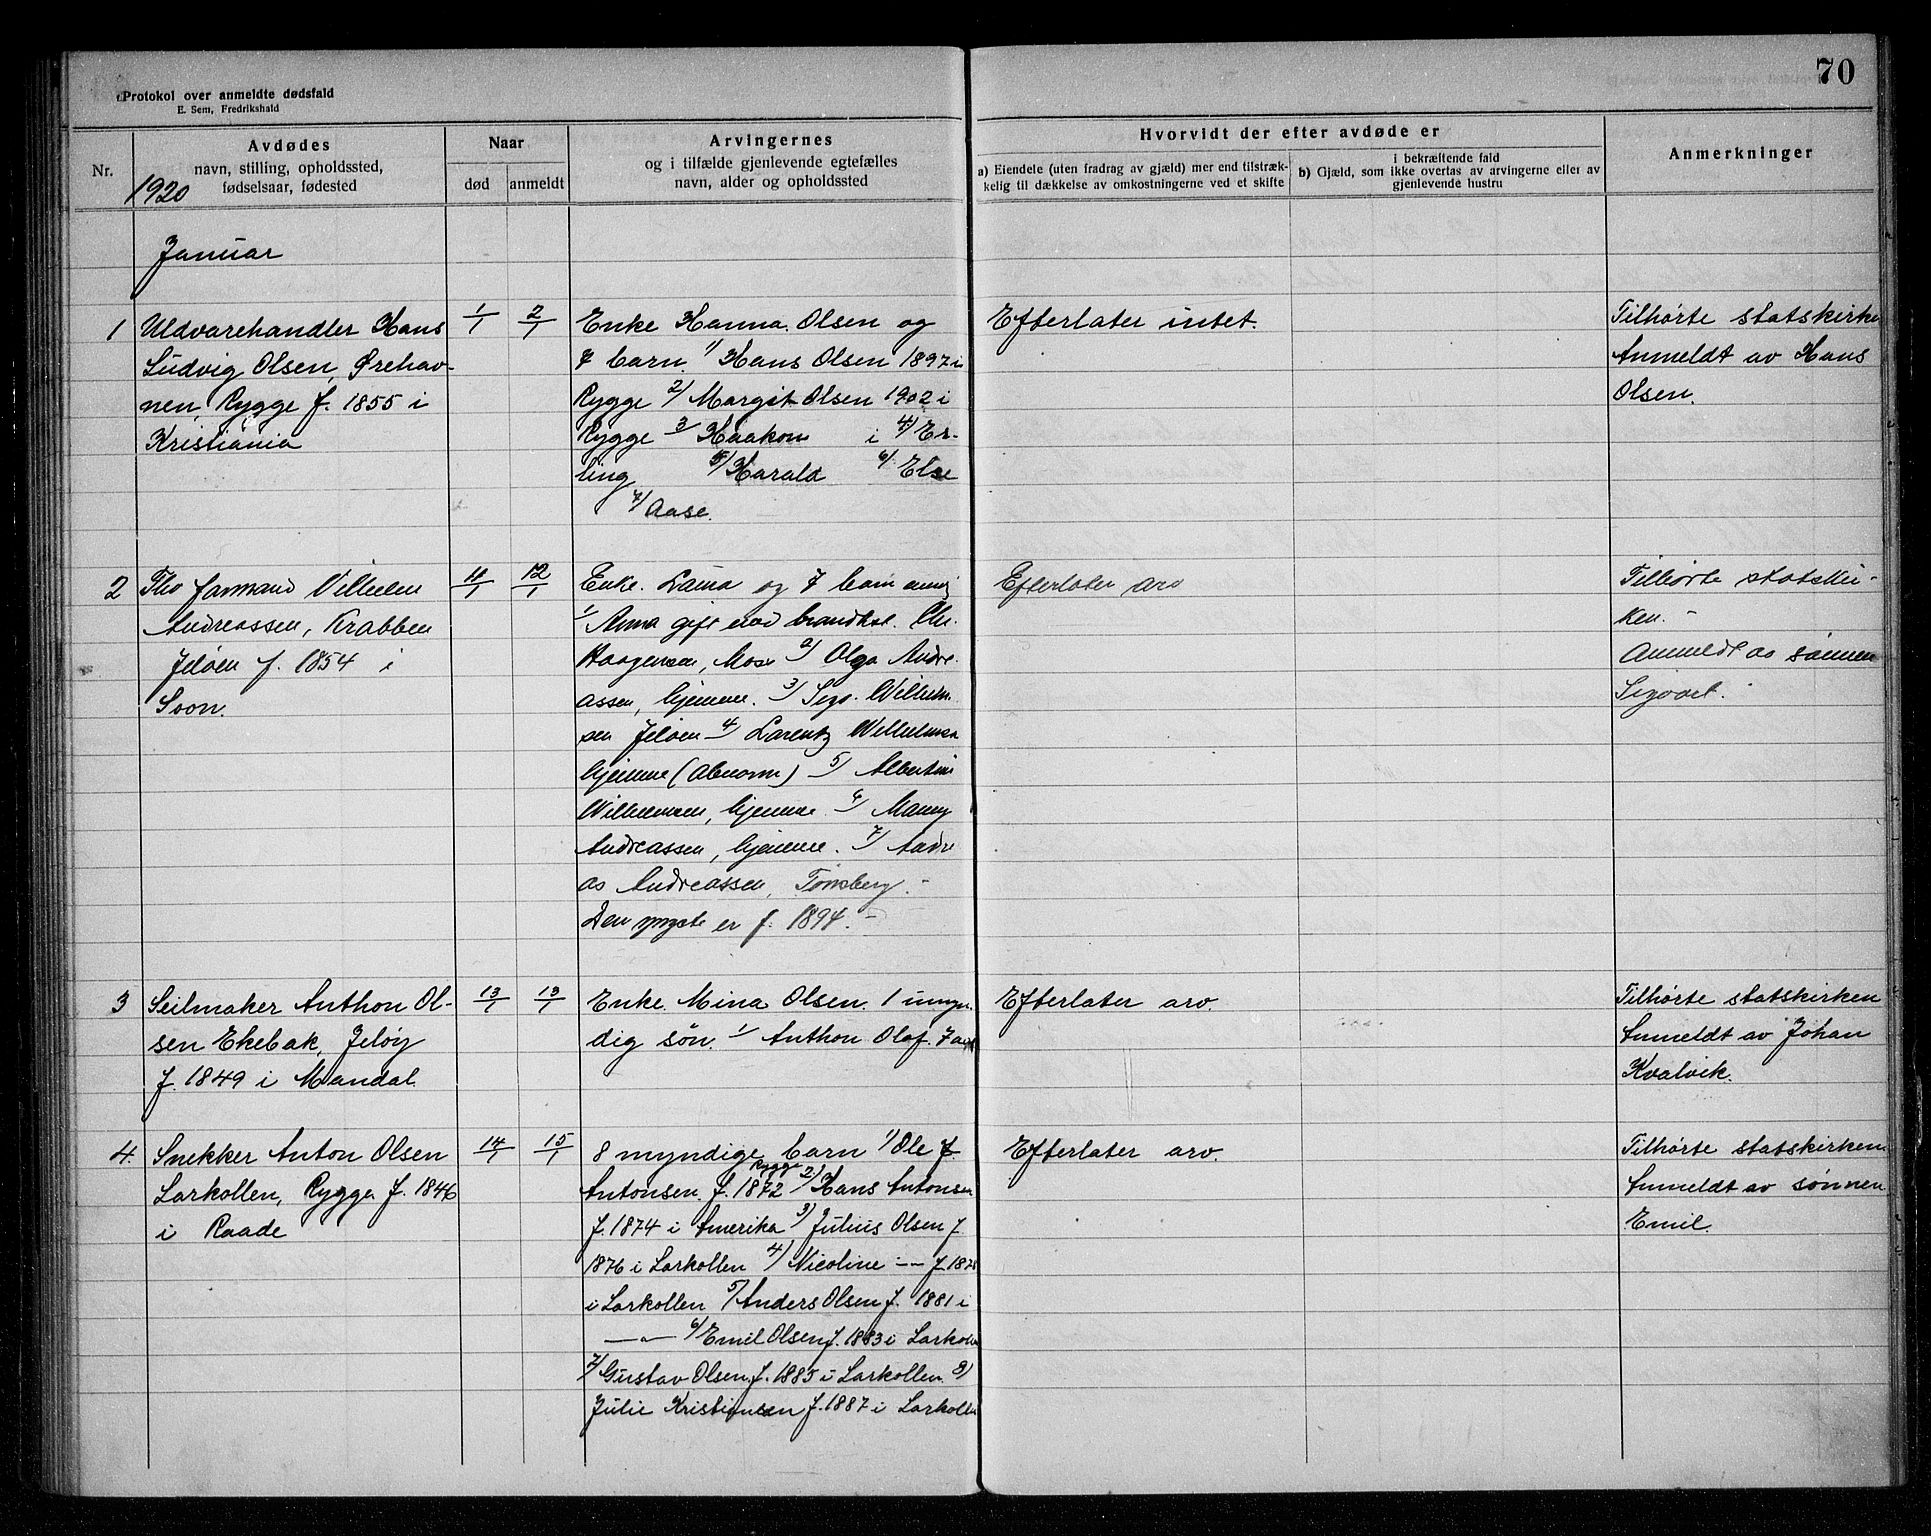 70
Protokol over anmeldte dødsfald
E. Sem, Fredrikshald
Nr.
Avdødes
navn, stilling, opholdssted,
fødselsaar, fødested
1920
Naar
død
anmeldt
Arvingernes
og i tilfælde gjenlevende egtefælles
navn, alder og opholdssted
Hvorvidt der efter avdøde er
a) Eiendele (uten fradrag av gjæld) mer end tilstræk-
kelig til dækkelse av omkostningerne ved et skifte
i bekræftende fald
b) Gjæld, som ikke overtas av arvingerne eller av
gjenlevende hustru
Anmerkninger
Januar
1
Uldvarehandler Hans
Ludvig Olsen, Ørehav-
nen, Rygge f. 1855 i
Kristiania
1/1
2/1
Enke Hanna Olsen og
7 barn. 1/ Hans Olsen 1897 i
Rygge 2/ Margit Olsen 1902 i
Rygge 3/ Haakon i 4/ Er-
ling 5/ Harald 6/ Else
7/ Aase.
Efterlater intet.
Tilhørte statskirke
Anmeldt av Hans
Olsen.
2
Andreassen, Krabben
Jeløen f. 1854 i
Soon.
11/1
12/1
Enke. Laura og 7 barn
1/ Anna gift med
Haagensen, Moss 2/ Olga Andre-
assen, hjemme. 3/ Sigv. Wilhelm-
sen Jeløen 4/ Lorentz Wilhelmsen
hjemme (abnorm) 5/ Albertine
Wilhelmsen, hjemme. 6/
Andreassen, hjemme. 7/ Andre
as Andreassen, Tønsberg. -
Den yngste er f. 1894. -
Efterlater arv
Tilhørte statskir-
ken. -
Anmeldt av sønnen
3
Seilmaker Anthon Ol-
sen Ekebak, Jeløy
f. 1849 i Mandal
13/1
13/1
Enke. Mina Olsen. 1 umyn-
dig søn. 1/ Anthon Olaf. 7 aar
Efterlater arv.
Tilhørte statskirken
Anmeldt av Johan
Kvalvik.
4.
Snekker Anton Olsen
Larkollen, Rygge f. 1846
i Raade
14/1
15/1
8 myndige barn 1/ Ole J.
Rygge
Antonsen f. 1872 2/ Hans Antonsen
f. 1874 i Amerika 3/ Julius Olsen f.
1876 i Larkollen 4/ Nicoline -- f. 1878
i Larkollen 5/ Anders Olsen f. 1881 i
—〃— 6/ Emil Olsen f. 1883 i Larkollen
7/ Gustav Olsen f. 1885 i Larkollen 8/
Julie Kristiansen f. 1887 i Larkollen
Efterlater arv.
Tilhørte statskirken.
Anmeldt av sønnen
Emil.